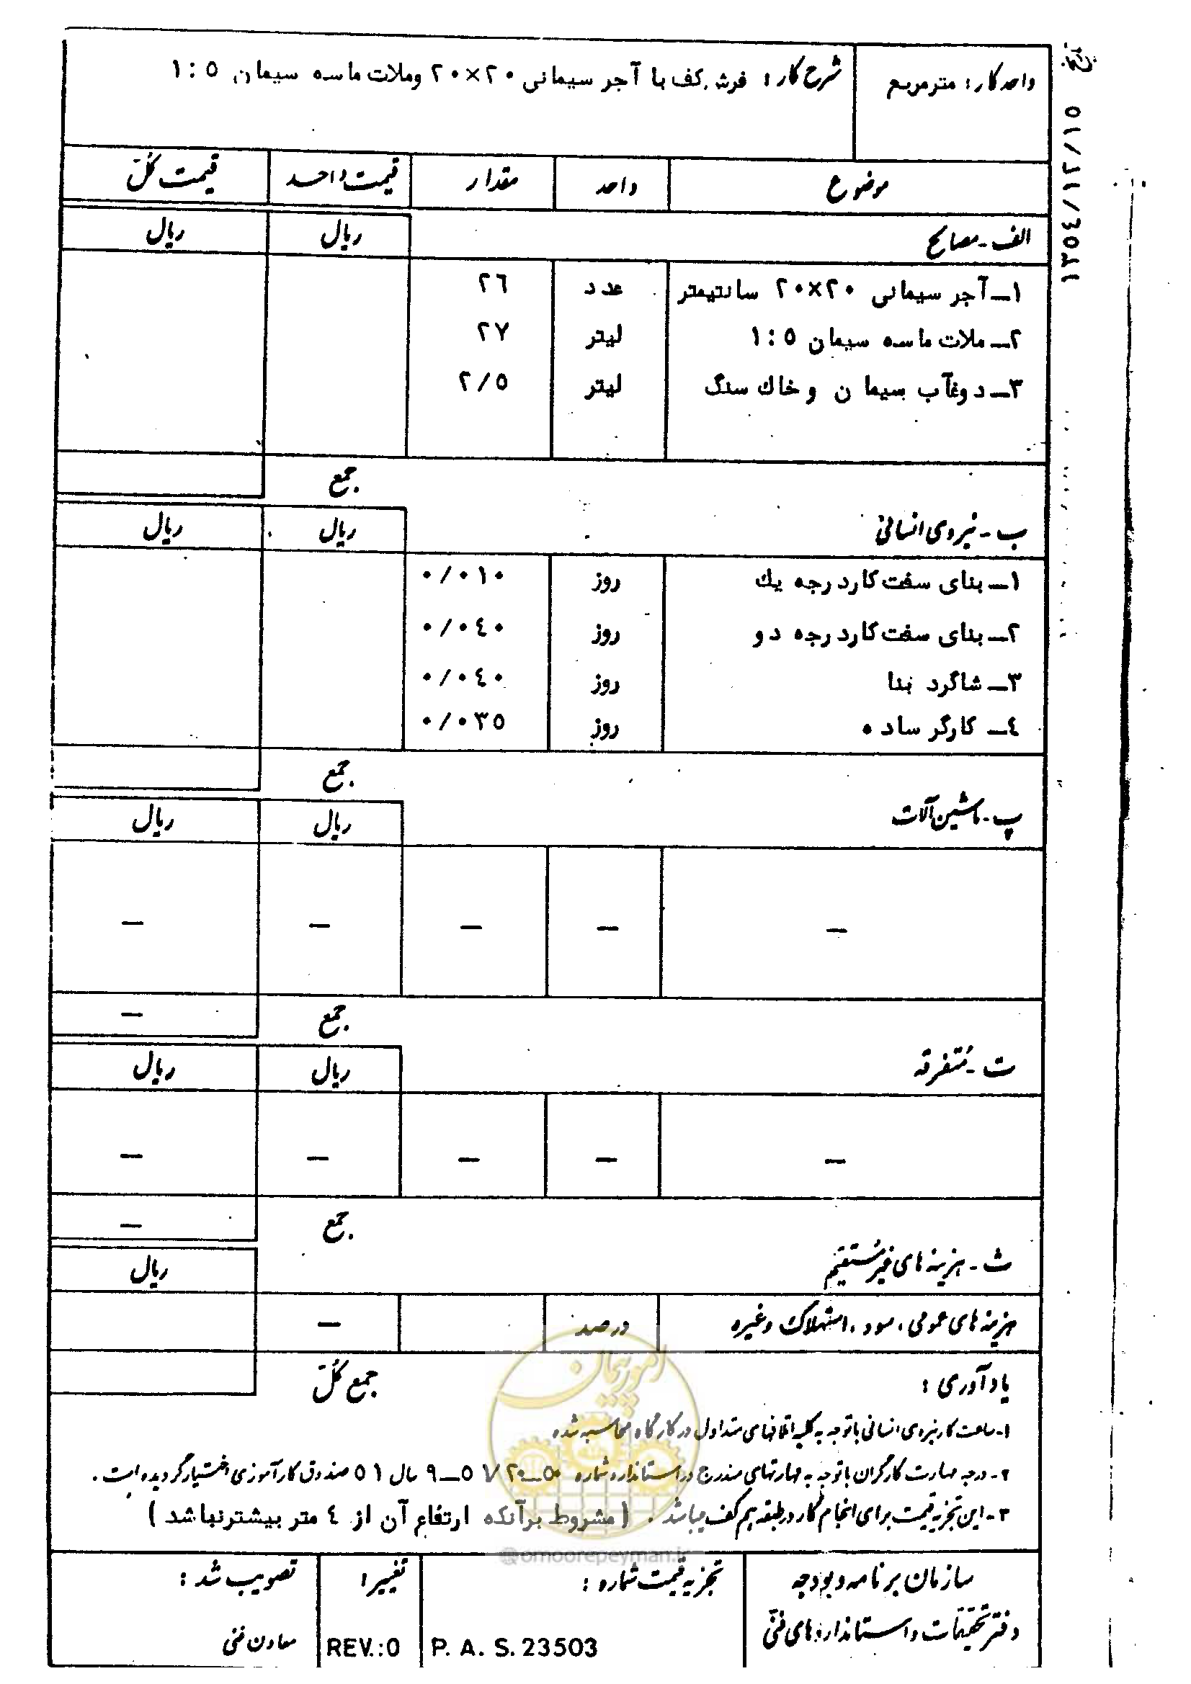 واحد کار : مترمربع
شرح کار : فرش کف با آجر سیمانی ۲۰×۲۰ وملات ماسه سیمان ۱:۵
۱۳۵٤/۱۲/۱۵
موضوع	واحد	مقدار	قیمت واحد	قیمت کُلّ
الف - مصالح	ریال	ریال
۱ــ آجر سیمانی ۲۰×۲۰ سانتیمتر	عدد	۲٦
۲ــ ملات ماسه سیمان ۱:۵	لیتر	۲۷
۳ــ دوغآب سیمان و خاك سنگ	لیتر	۲/۵
جمع
ب - نیروی انسانی	ریال	ریال
۱ــ بنای سفت کار درجه یك	روز	۰/۰۱۰
۲ــ بنای سفت کار درجه دو	روز	۰/۰٤۰
۳ــ شاگرد بنا	روز	۰/۰٤۰
٤ــ کارگر ساده	روز	۰/۰۳۵
جمع
پ - ماشین آلات	ریال	ریال
—	—	—	—	—
جمع	—
ت - مُتفرقه	ریال	ریال
—	—	—	—	—
جمع	—
ث - هزینه های غیر مُستقیم	ریال
هزینه های عمومی ، سود ، استهلاک وغیره	درصد	—
جمع کُلّ
یادآوری :
۱- ساعت کار نیروی انسانی با توجه به کلیه اتلافهای متداول در کارگاه محاسبه شده
۲- درجه مهارت کارگران با توجه به مهارتهای مندرج در استاندارد شماره ۵۰ــ۲۰/۱ ۵ــ۹ سال ۵۱ صندوق کارآموزی اختیار گردیده است .
۳- این تجزیه قیمت برای انجام کار در طبقه هم کف میباشد . ( مشروط برآنکه ارتفاع آن از ٤ متر بیشتر نباشد )
امور پیمان
@omoorepeyman.ir
سازمان برنامه و بودجه
دفتر تحقیقات و استانداردهای فنّی
تجزیه قیمت شماره :
P. A. S. 23503
تغییر :
REV.:0
تصویب شد :
معاون فنی